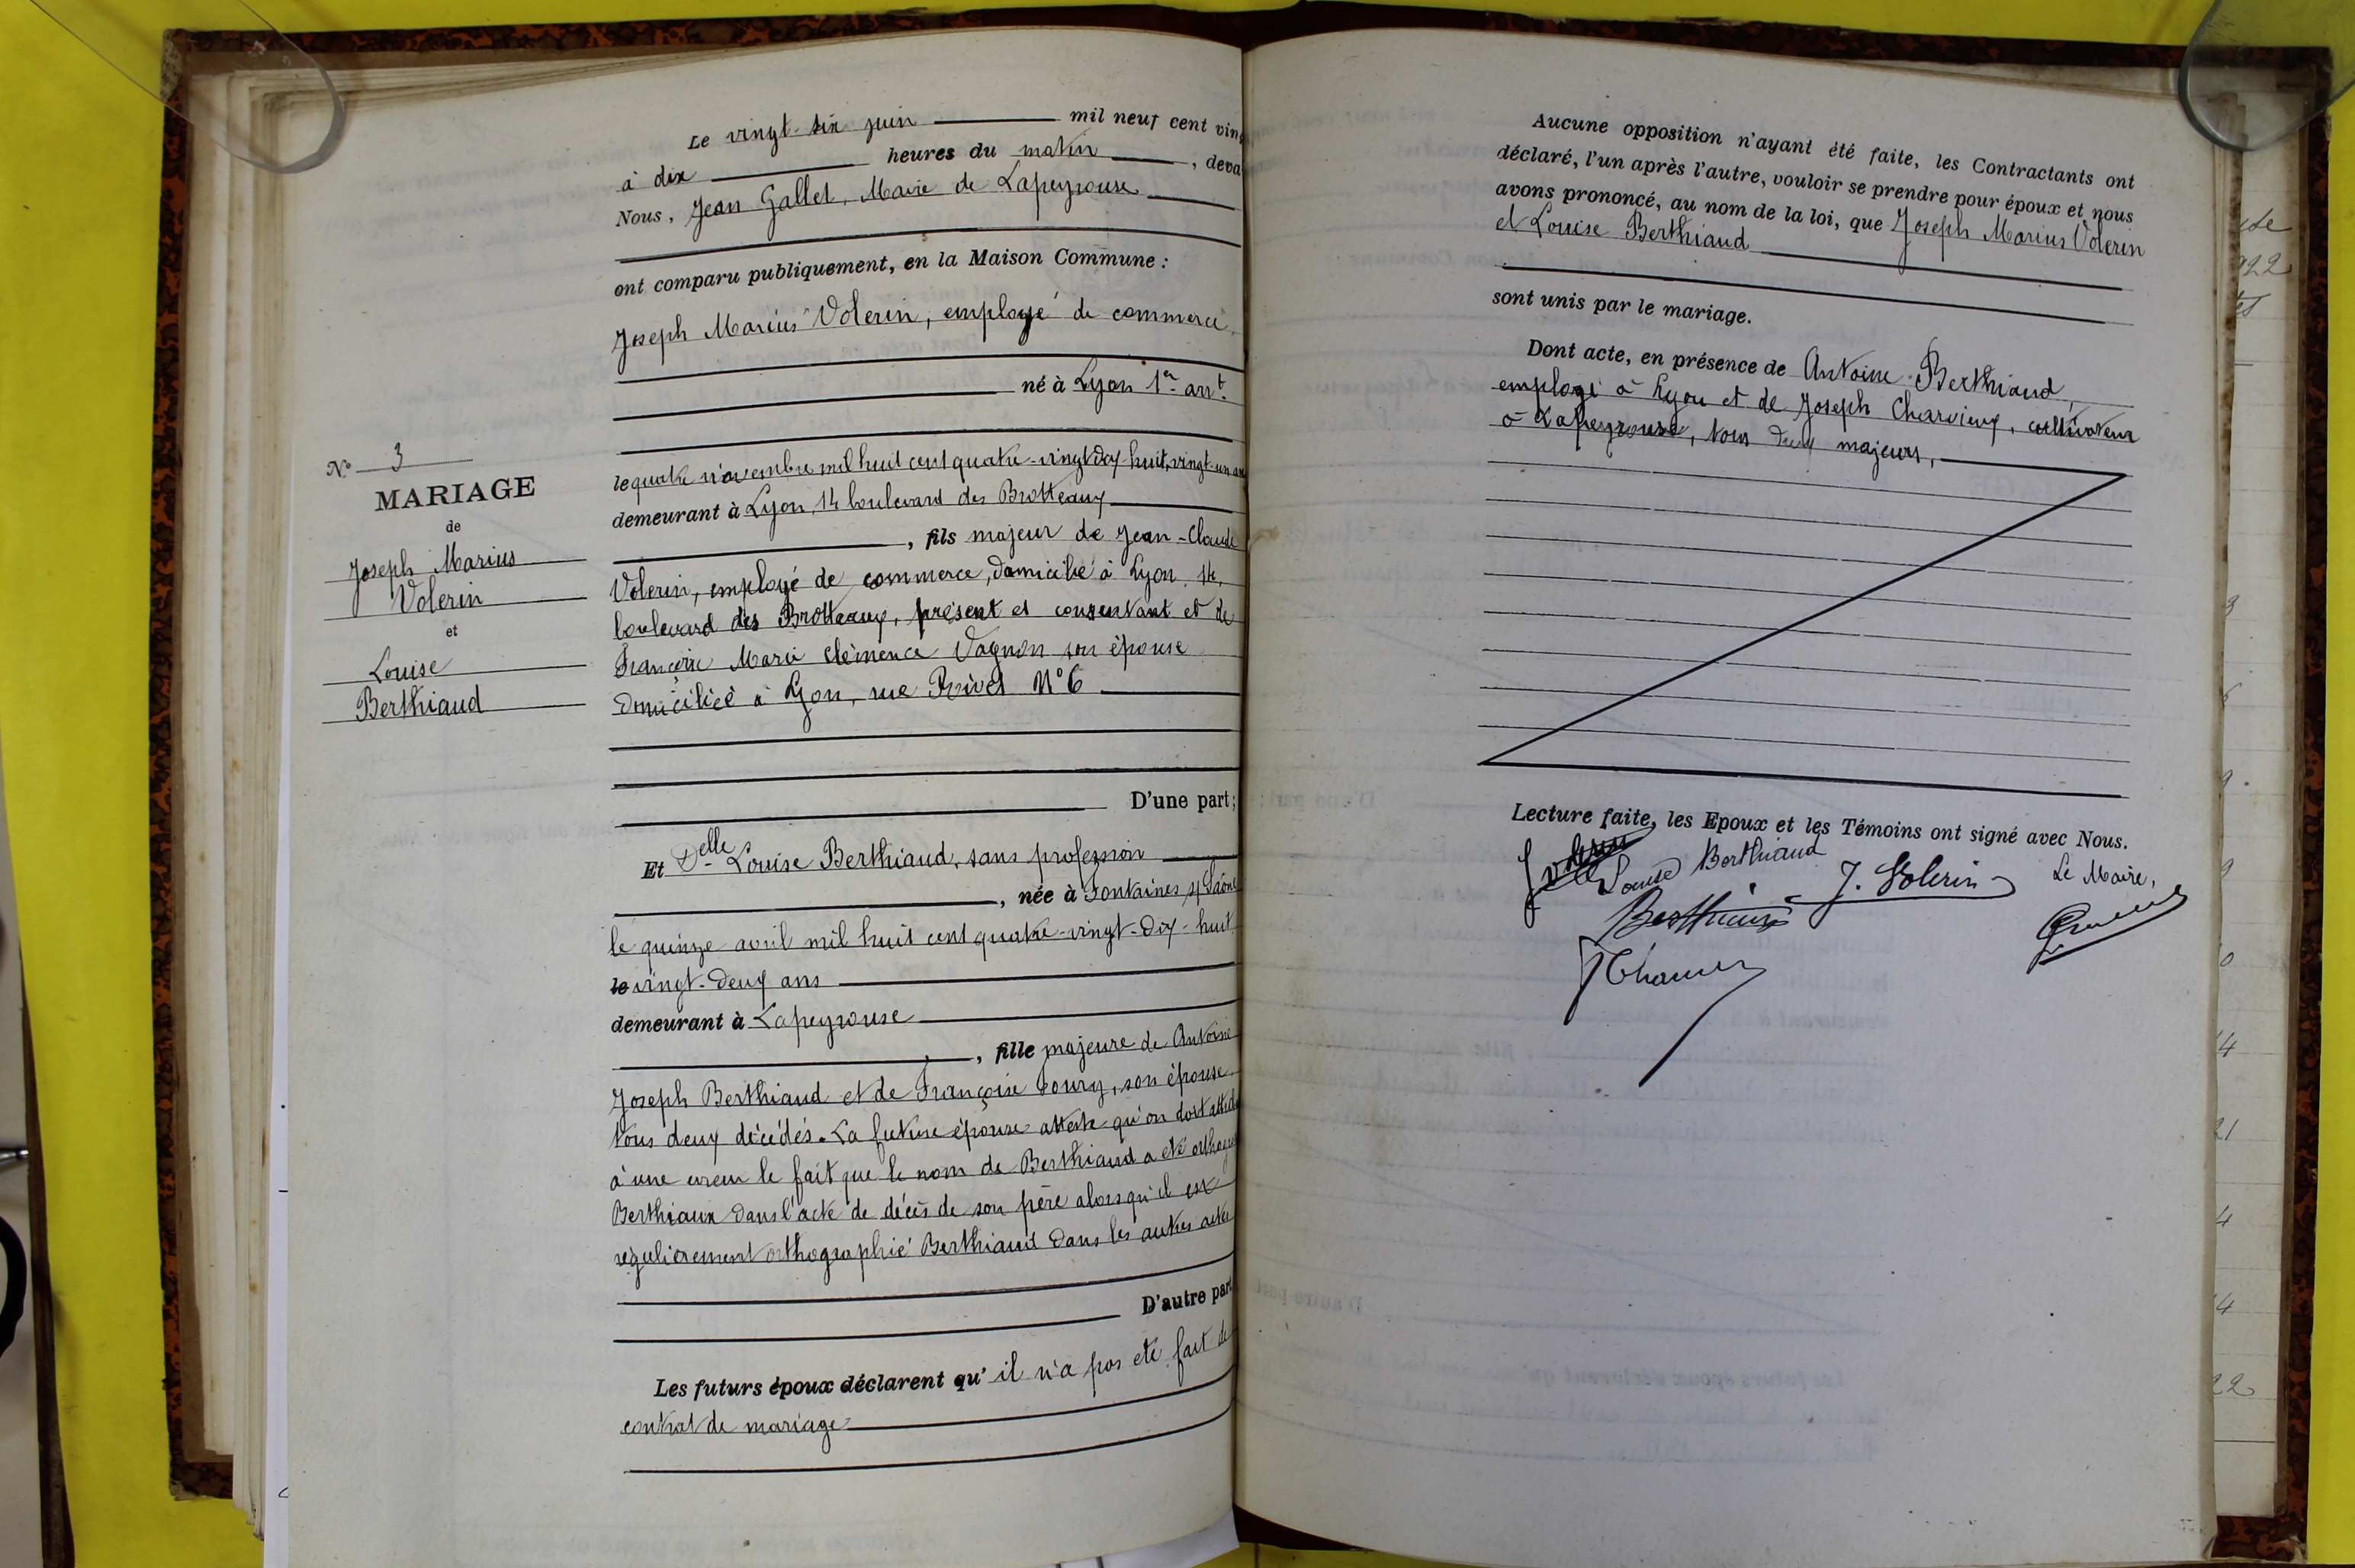 N° 3
MARIAGE
de
Joseph Marius
Volerin
et
Louise
Berthiaud
Le vingt-six juin mil neuf cent ving
à dix heures du matin, deva
Nous, Jean Gallet, Maire de Lapeyrouse
ont comparu publiquement, en la Maison Commune :
Joseph Marius Volerin, employé de commerce
né à Lyon 1er arrt.
le quatre novembre mil huit cent quatre-vingt dix-huit, vingt-un ans
demeurant à Lyon, 14 boulevard des Brotteaux
, fils majeur de Jean-Claude
Volerin, employé de commerce, domicilié à Lyon, 14,
boulevard des Brotteaux, présent et consentant et de
Françoise Marie Clémence Vagnon son épouse
domiciliée à Lyon, rue Rivet N° 6
D'une part;
Et Delle Louise Berthiaud, sans profession
, née à Fontaines s/ Saône
le quinze avril mil huit cent quatre-vingt-dix-huit
le vingt-deux ans
demeurant à Lapeyrouse
, fille majeure de Antoine
Joseph Berthiaud et de Françoise Goury, son épouse
tous deux décédés. La future épouse atteste qu'on doit
à une erreur le fait que le nom de Berthiaud a été
Berthiaux dans l'acte de décès de son père alors qu'il est
régulièrement orthographié Berthiaud dans les autres actes
D'autre part
Les futurs époux déclarent qu'il n'a pas été fait de
contrat de mariage
Aucune opposition n'ayant été faite, les Contractants ont
déclaré, l'un après l'autre, vouloir se prendre pour époux et nous
avons prononcé, au nom de la loi, que Joseph Marius Volerin
et Louise Berthiaud
sont unis par le mariage.
Dont acte, en présence de Antoine Berthiaud,
employé à Lyon et de Joseph Charvieux, cultivateur
à Lapeyrouse, tous deux majeurs,
Lecture faite, les Epoux et les Témoins ont signé avec Nous.
Louise Berthiaud
J. Volerin
Le Maire,
Berthiaud
922